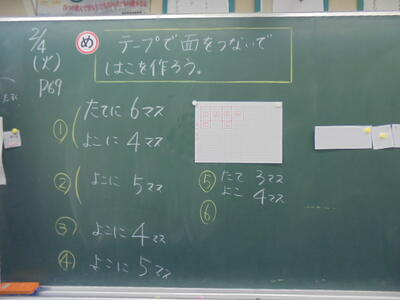 2/4
(火)
P69
め テープで面をつないで
はこを作ろう。
① たてに 6マス
よこに 4マス
② よこに 5マス
③ よこに 4マス
④ よこに 5マス
⑤ たて 3マス
よこ 4マス
⑥